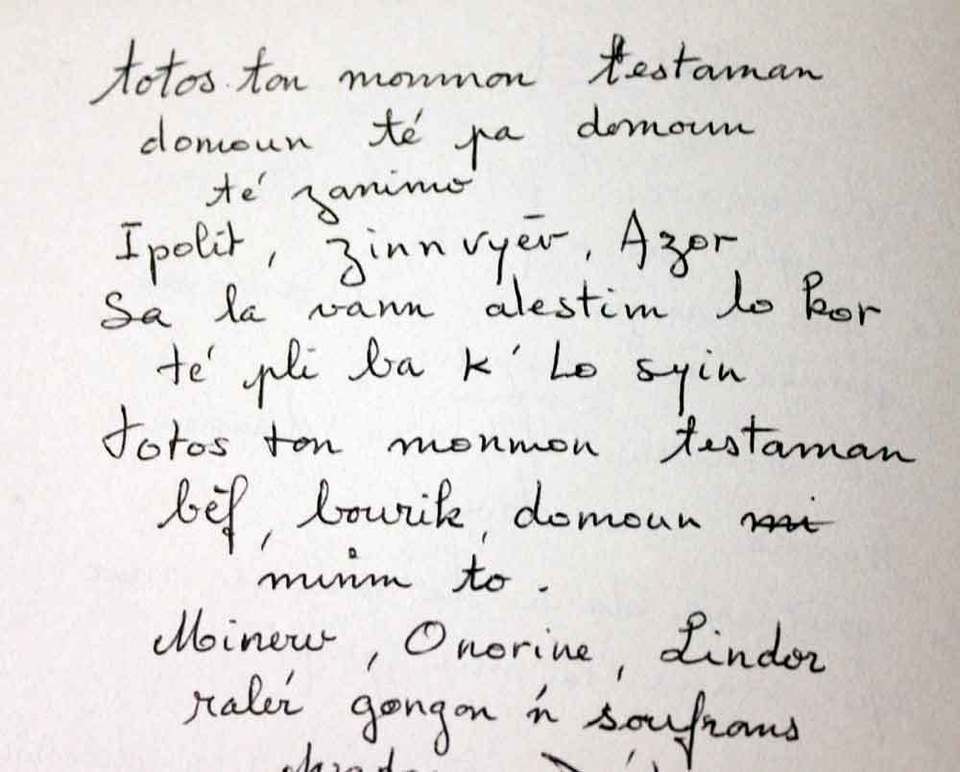 totos ton monmon testaman
domoun té pa domoun
té zanimo
Ipolit, Zinnvyēv, Azor
Sa la vann alestim lo kor
té pli ba k' Lo syin
totos ton monmon testaman
bèf, bourik, domoun mi
minm to.
Minerv, Onorine, Lindor
ralér gongon 'n soufrans